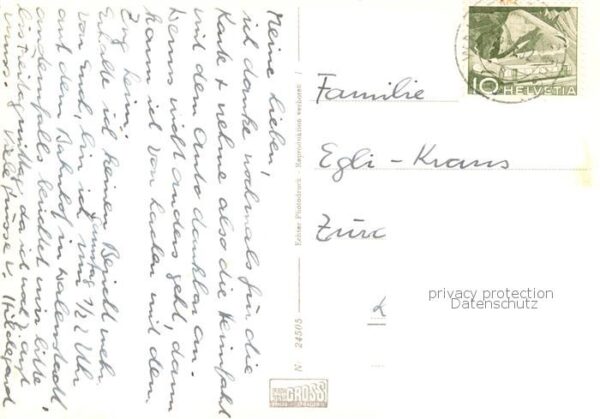 Meine Lieben,
ich danke nochmals für die
Karte + nehme also die Heimfahrt
mit dem Auto dankbar an.
Wenns nicht anders geht, dann
kann ich von Baden mit dem
Zug heim.
Erhalte ich keinen Bericht mehr
von Euch, bin ich um 1/2 2 Uhr
Samstag
auf dem Bahnhof in Walenstadt,
andernfalls berichtet mir bitte
bis Freitagmittag, da ich
muss. Viele Grüsse v. Hildegard
HELVETIA
10
Familie
Egli-Kraus
Züri
privacy protection
Datenschutz
Echter Photodruck Reproduktion verboten
N 24505
GROSS